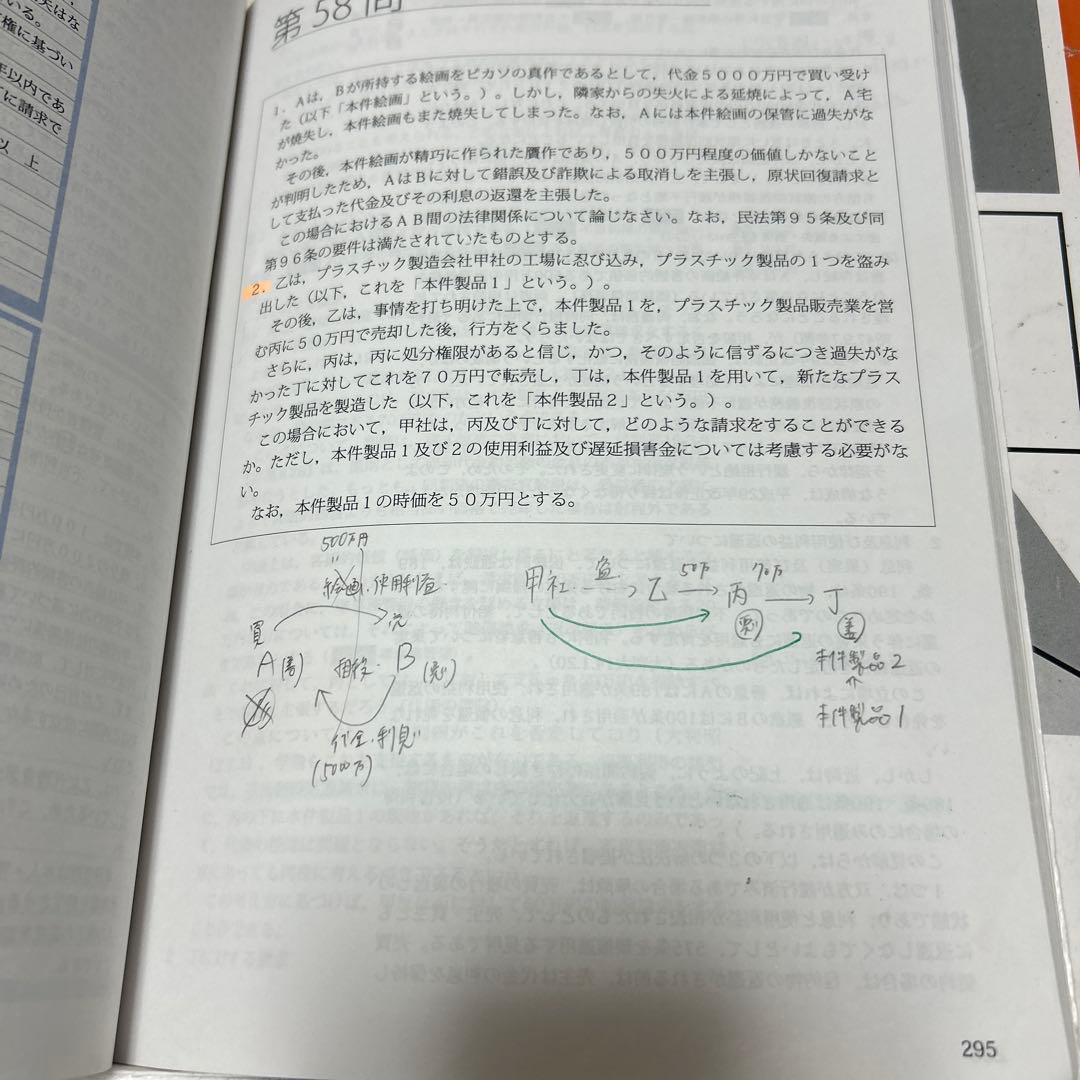 失はな
いる。
権に基づい
年以内であ
に請求で
以　上
第58問
1．Aは，Bが所持する絵画をピカソの真作であるとして，代金５０００万円で買い受け
た（以下「本件絵画」という。）。しかし，隣家からの失火による延焼によって，A宅
が焼失し，本件絵画もまた焼失してしまった。なお，Aには本件絵画の保管に過失がな
かった。
その後，本件絵画が精巧に作られた贋作であり，５００万円程度の価値しかないこと
が判明したため，AはBに対して錯誤及び詐欺による取消しを主張し，原状回復請求と
して支払った代金及びその利息の返還を主張した。
この場合におけるAB間の法律関係について論じなさい。なお，民法第９５条及び同
第９６条の要件は満たされていたものとする。
2．乙は，プラスチック製造会社甲社の工場に忍び込み，プラスチック製品の１つを盗み
出した（以下，これを「本件製品１」という。）。
その後，乙は，事情を打ち明けた上で，本件製品１を，プラスチック製品販売業を営
む丙に５０万円で売却した後，行方をくらました。
さらに，丙は，丙に処分権限があると信じ，かつ，そのように信ずるにつき過失がな
かった丁に対してこれを７０万円で転売し，丁は，本件製品１を用いて，新たなプラス
チック製品を製造した（以下，これを「本件製品２」という。）。
この場合において，甲社は，丙及び丁に対して，どのような請求をすることができる
か。ただし，本件製品１及び２の使用利益及び遅延損害金については考慮する必要がな
い。
なお，本件製品１の時価を５０万円とする。
500万円
絵画・使用利益
買
売
A(善)
相殺
B
(悪)
代金・利息
(5000万)
甲社
盗
乙
50万
丙
70万
丁
悪
善
本件製品2
本件製品1
295